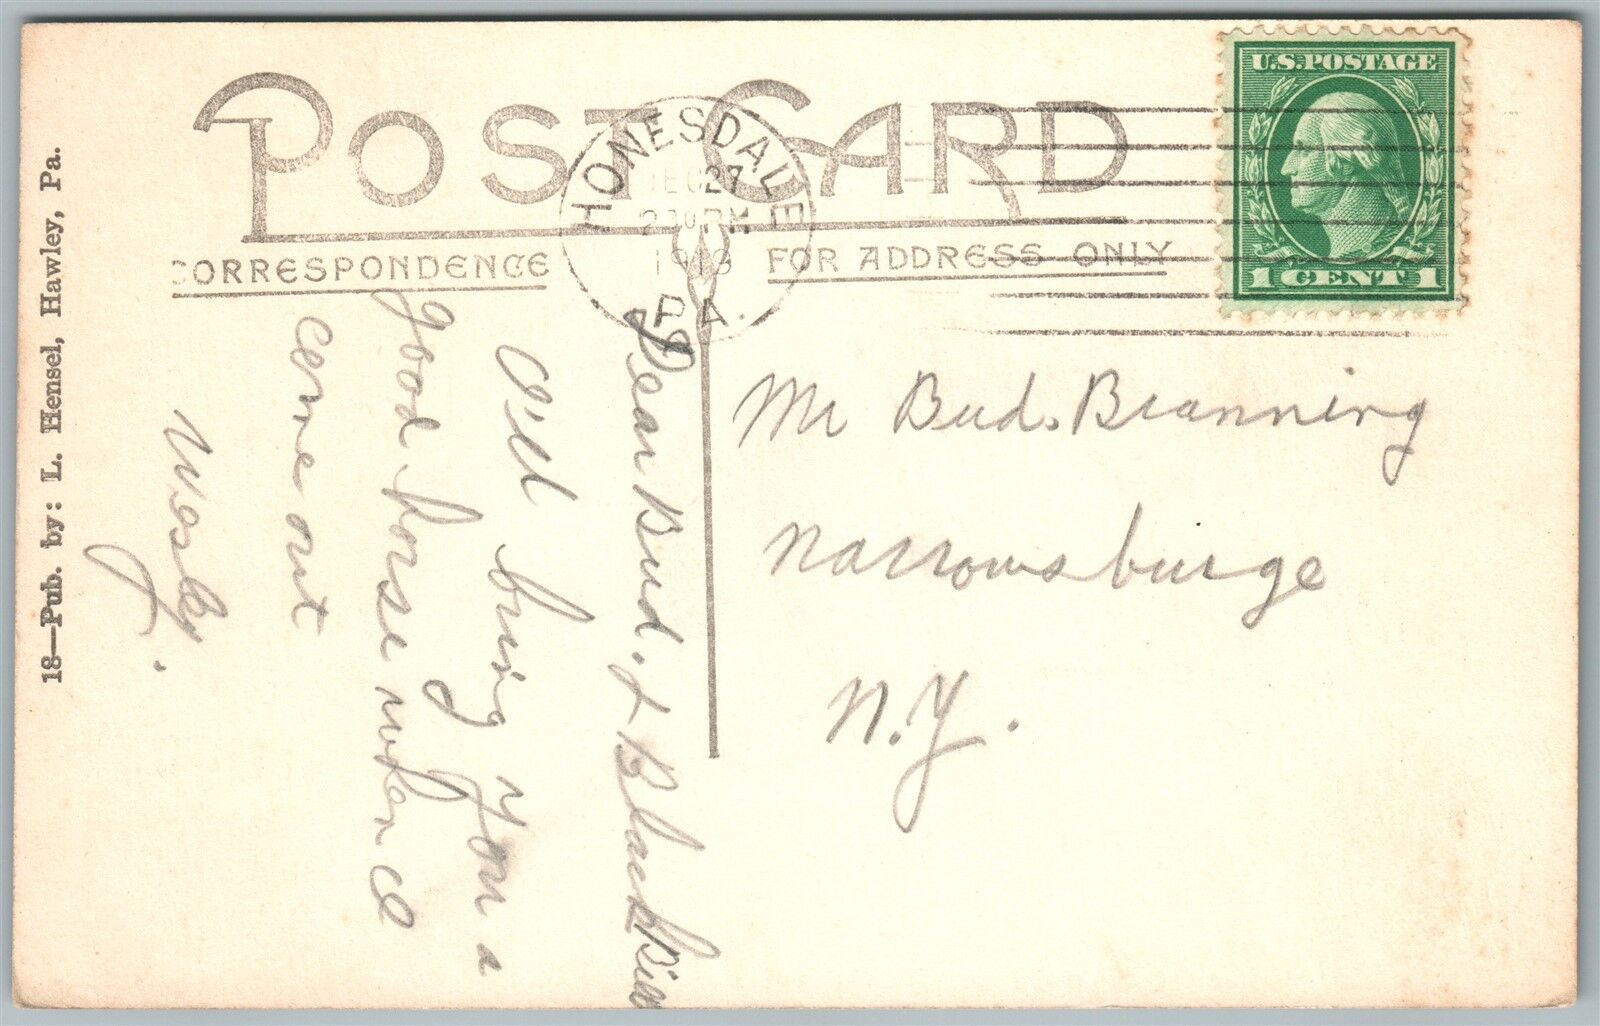 POST CARD
CORRESPONDENCE
FOR ADDRESS ONLY
HONESDALE
DEC 27
230 PM
PA.
U.S. POSTAGE
1 CENT 1
Mr Bud. Branning
Narrowsburge
N.Y.
Dear Bud. & Black Bill
I'll bring you a
good horse when I
come out
Wesley.
18—Pub. by: L. Hensel, Hawley, Pa.